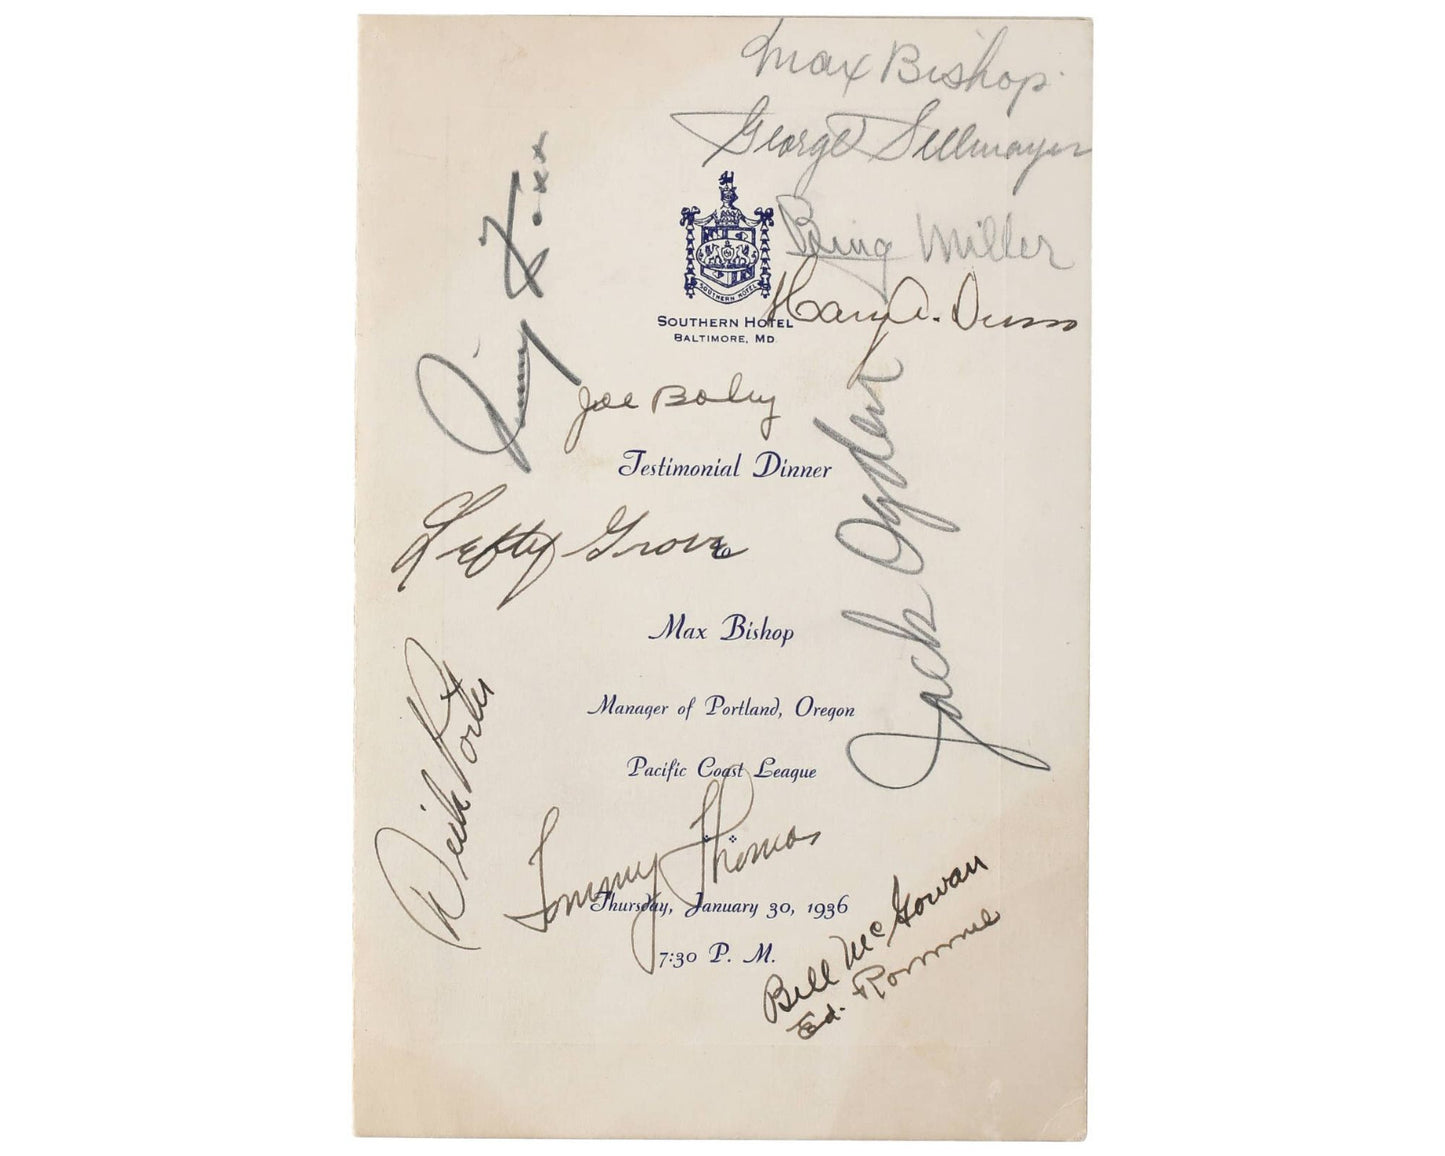 Max Bishop
George Sellmayer
Bing Miller
SOUTHERN HOTEL
SOUTHERN HOTEL
BALTIMORE, MD
Harry A.
Jimmy Foxx
Joe Boley
Testimonial Dinner
Lefty Grove
Jack Ogden
Max Bishop
Manager of Portland, Oregon
Pacific Coast League
Dick Porter
Tommy Thomas
Thursday, January 30, 1936
7:30 P. M.
Bill McGowan
Ed. Rommel